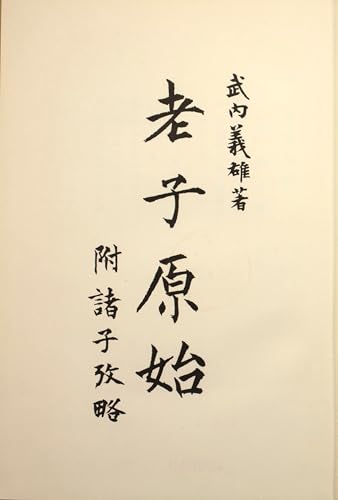 武内義雄著
老子原始
附諸子攷略